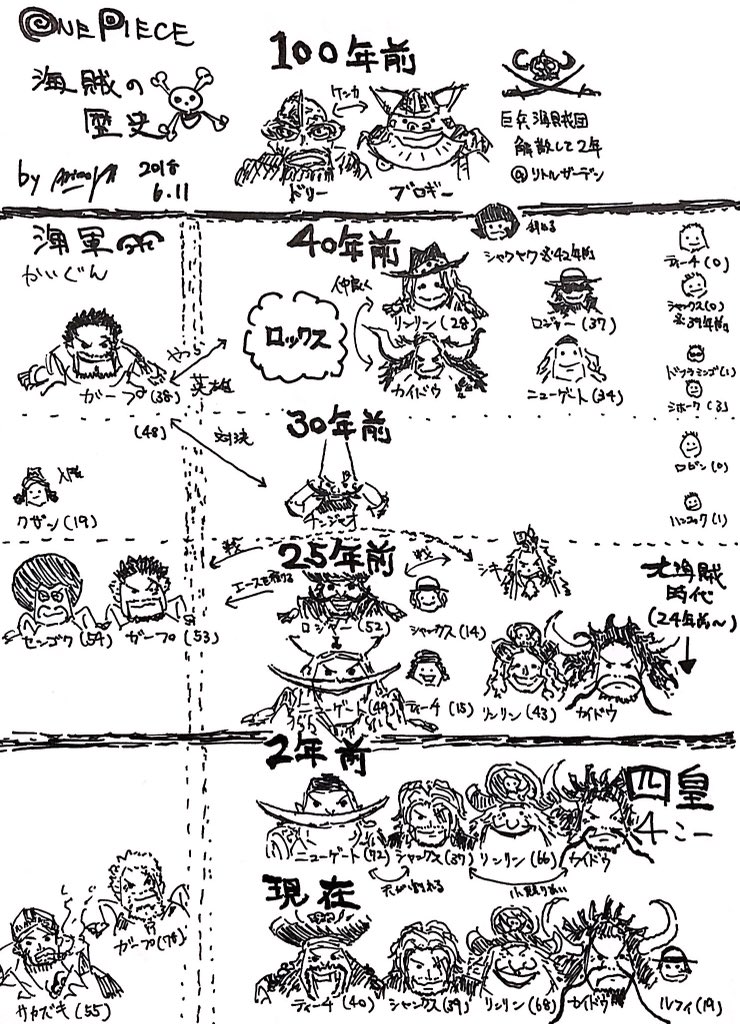 ONE PIECE
海賊の
歴史
by
2018
6.11
100年前
ケンカ
ドリー
ブロギー
巨兵海賊団
解散して2年
@リトルガーデン
海軍
かいぐん
40年前
シャクヤク ※42年前
仲良く
リンリン(28)
カイドウ
ロックス
ロジャー(37)
ニューゲート(34)
ティーチ(0)
シャンクス(0)
※39年前
ドフラミンゴ(1)
ミホーク(3)
ガープ(38)
やる
英雄
30年前
(48)
対決
チンジャオ
ロビン(0)
ハンコック(1)
クザン(19)
入隊
25年前
エースを預ける
戦
シキ
大海賊
時代
(24年前〜)
センゴク(54)
ガープ(53)
ロジャー(52)
シャンクス(14)
ニューゲート(49)
ティーチ(15)
リンリン(43)
カイドウ
2年前
四皇
4こー
ニューゲート(72)
シャンクス(37)
リンリン(66)
カイドウ
天が割れる
小競りあい
現在
ガープ(78)
サカズキ(55)
ティーチ(40)
シャンクス(39)
リンリン(68)
カイドウ
ルフィ(19)